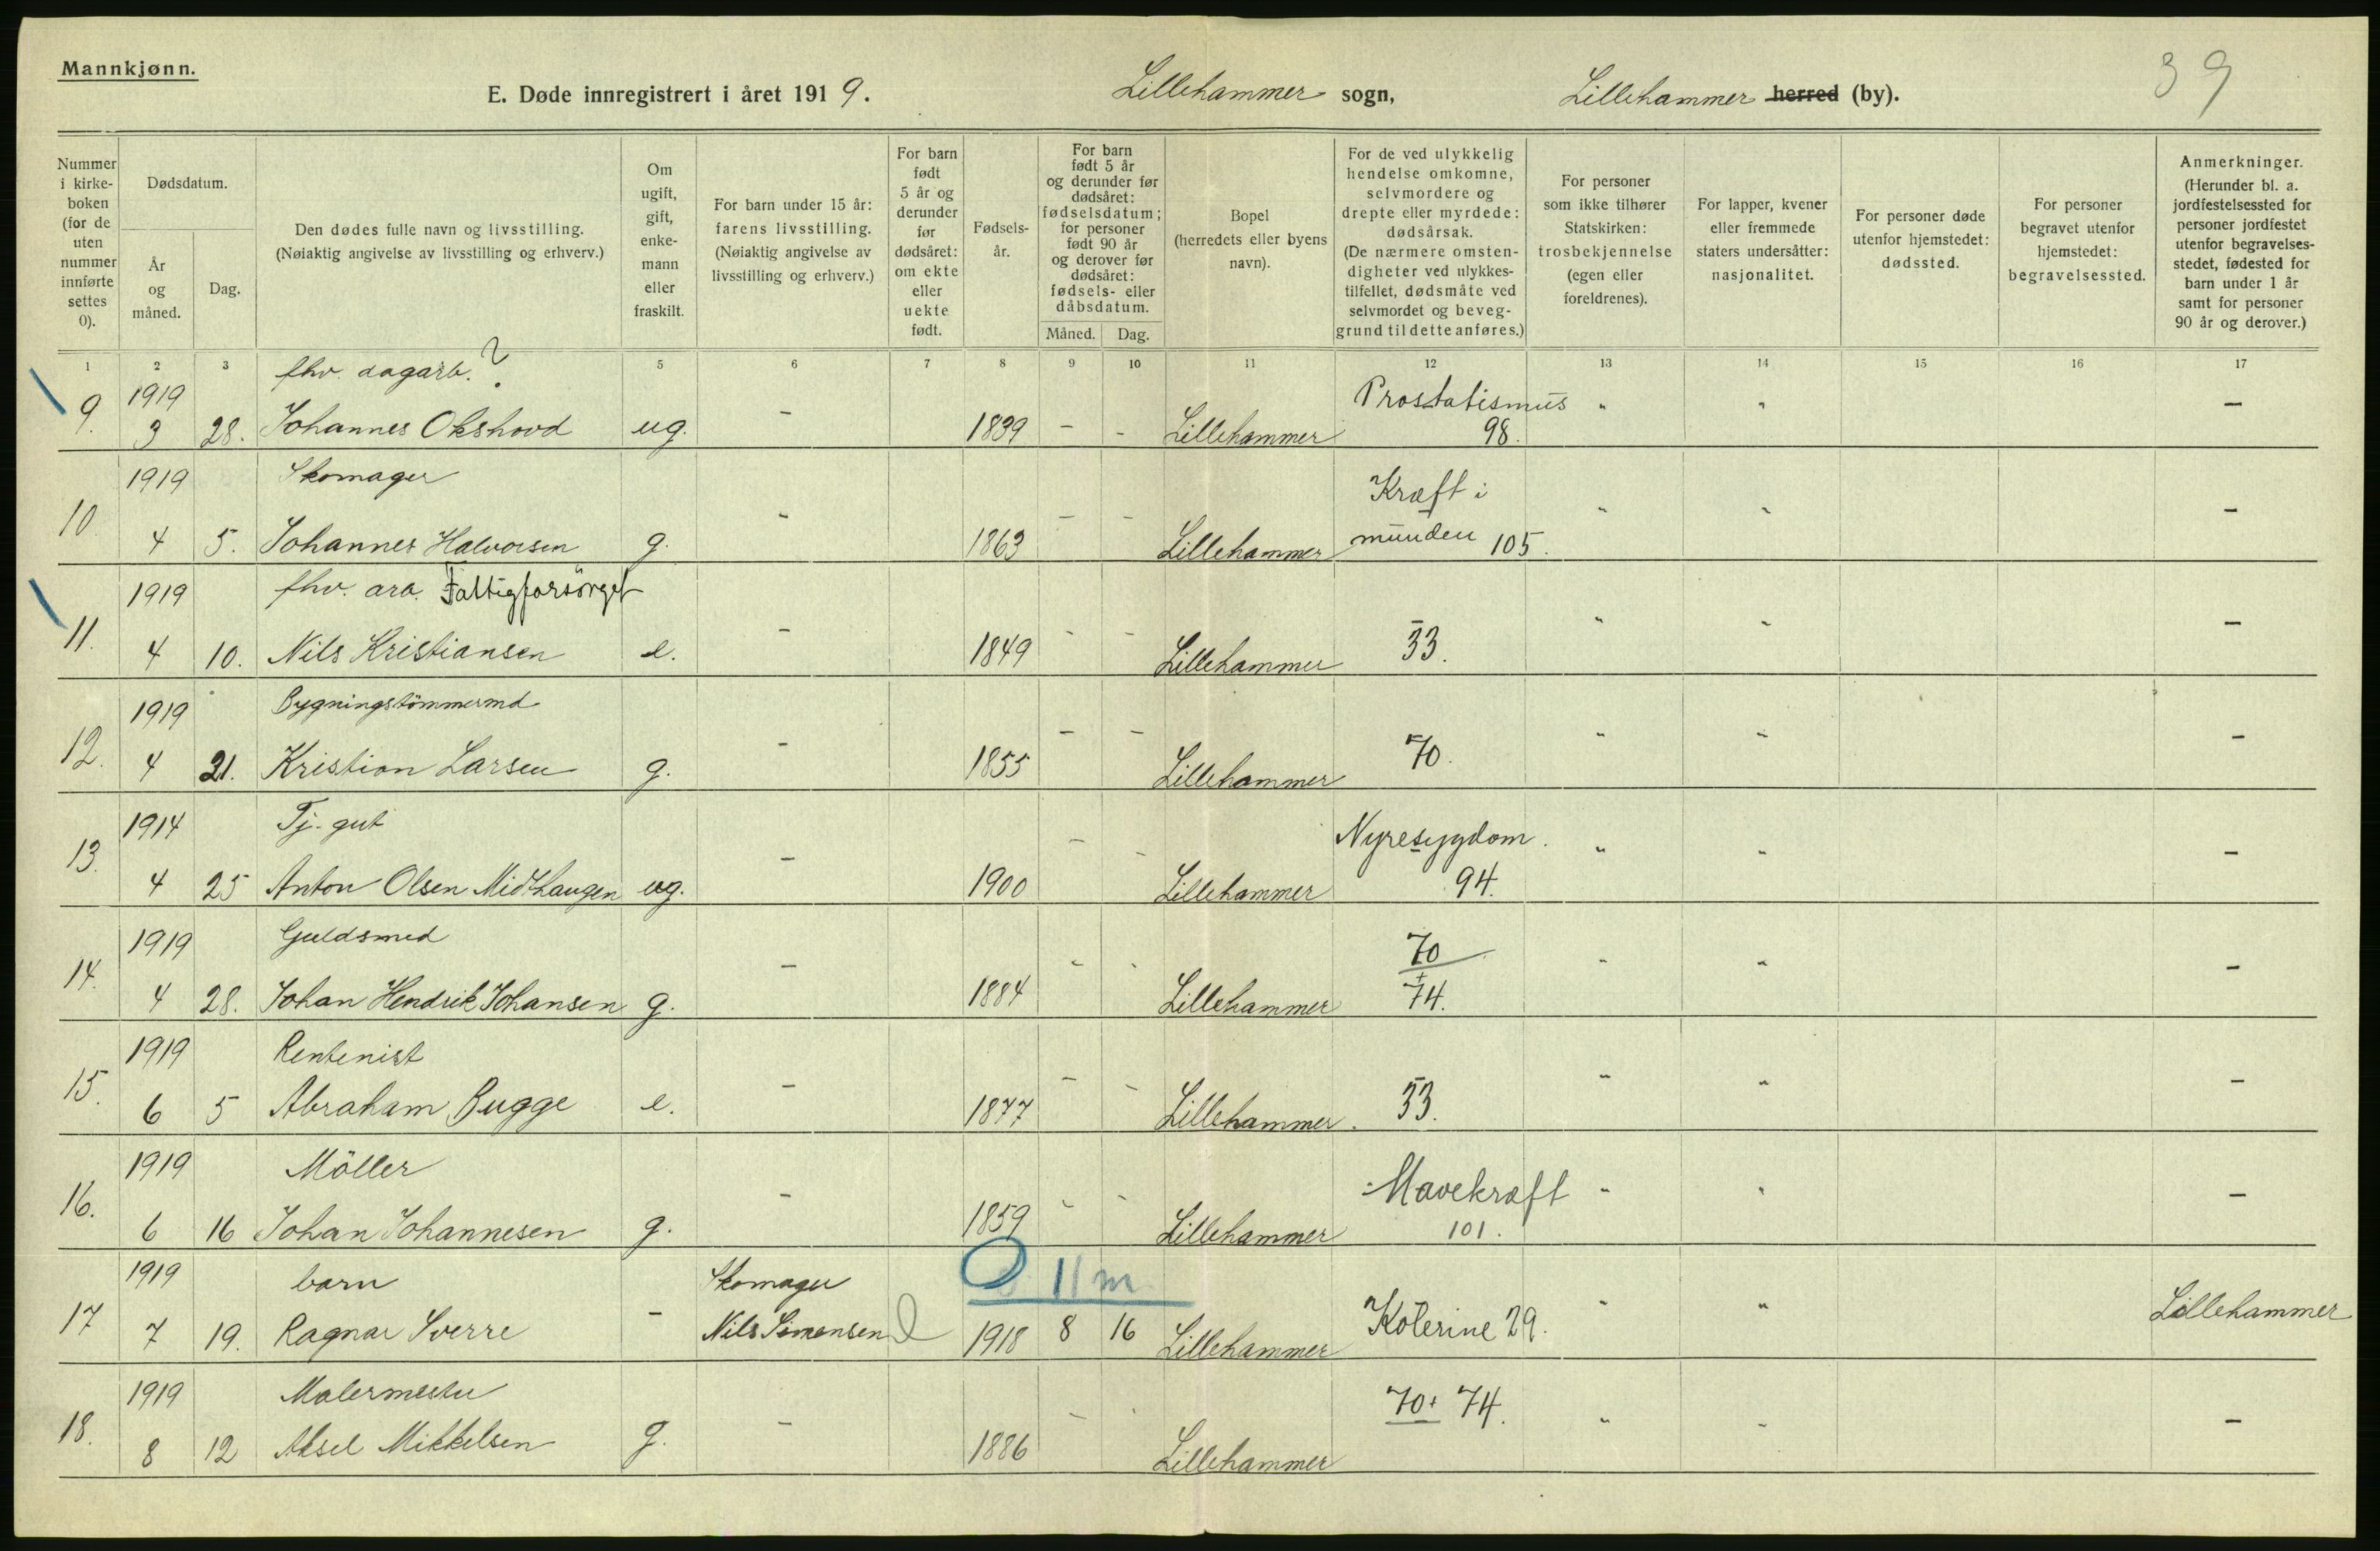 Mannkjønn.
39
E. Døde innregistrert i året 1919. Lillehammer sogn, Lillehammer herred (by).
Nummer i kirkeboken (for de uten nummer innførte settes 0).
Dødsdatum.
År og måned.
Dag.
Den dødes fulle navn og livsstilling. (Nøiaktig angivelse av livsstilling og erhverv.)
Om ugift, gift, enkemann eller fraskilt.
For barn under 15 år: farens livsstilling. (Nøiaktig angivelse av livsstilling og erhverv.)
For barn født 5 år og derunder før dødsåret: om ekte eller uekte født.
Fødselsår.
For barn født 5 år og derunder før dødsåret: fødselsdatum; for personer født 90 år og derover før dødsåret: fødsels- eller dåbsdatum.
Måned. Dag.
Bopel (herredets eller byens navn).
For de ved ulykkelig hendelse omkomne, selvmordere og drepte eller myrdede: dødsårsak. (De nærmere omstendigheter ved ulykkestilfellet, dødsmåte ved selvmordet og beveggrund til dette anføres.)
For personer som ikke tilhører Statskirken: trosbekjennelse (egen eller foreldrenes).
For lapper, kvener eller fremmede staters undersåtter: nasjonalitet.
For personer døde utenfor hjemstedet: dødssted.
For personer begravet utenfor hjemstedet: begravelsessted.
Anmerkninger. (Herunder bl. a. jordfestelsessted for personer jordfestet utenfor begravelsesstedet, fødested for barn under 1 år samt for personer 90 år og derover.)
1 2 3 5 6 7 8 9 10 11 12 13 14 15 16 17
1919 fhv. dagarb. ? Prostatismus
9. 3 28. Johannes Okshovd ug. - 1839 - - Lillehammer 98. " " -
1919 Skomager Kræft i
10 4 5. Johannes Halvorsen g. - 1863 - - Lillehammer munden 105. " " -
1919 fhv. arb. Fattigforsörget
11. 4 10. Nils Kristiansen e. - 1849 - - Lillehammer 33. " " -
1919 Bygningstömmermd
12. 4 21. Kristian Larsen g. - 1855 - - Lillehammer 70. " " -
1914 Tj. gut Nyresygdom.
13. 4 25 Anton Olsen Midthaugen ug. - 1900 - - Lillehammer 94. " " -
1919 Guldsmed 70 +
14. 4 28. Johan Hendrik Johansen g. - 1884 - - Lillehammer 74. " " -
1919 Rentenist
15. 6 5 Abraham Bugge e. - 1877 - - Lillehammer. 33. " " -
1919 Möller Mavekræft
16. 6 16 Johan Johannesen g. - 1859 - - Lillehammer 101. " " -
1919 barn Skomager 0 11 m
17 7 19. Ragnar Sverre - Nils Simensen 1918 8 16 Lillehammer Kolerine 29. " " Lillehammer
1919 Malermester
18. 8 12 Aksel Mikkelsen g. - 1886 - - Lillehammer 70 + 74. " " -